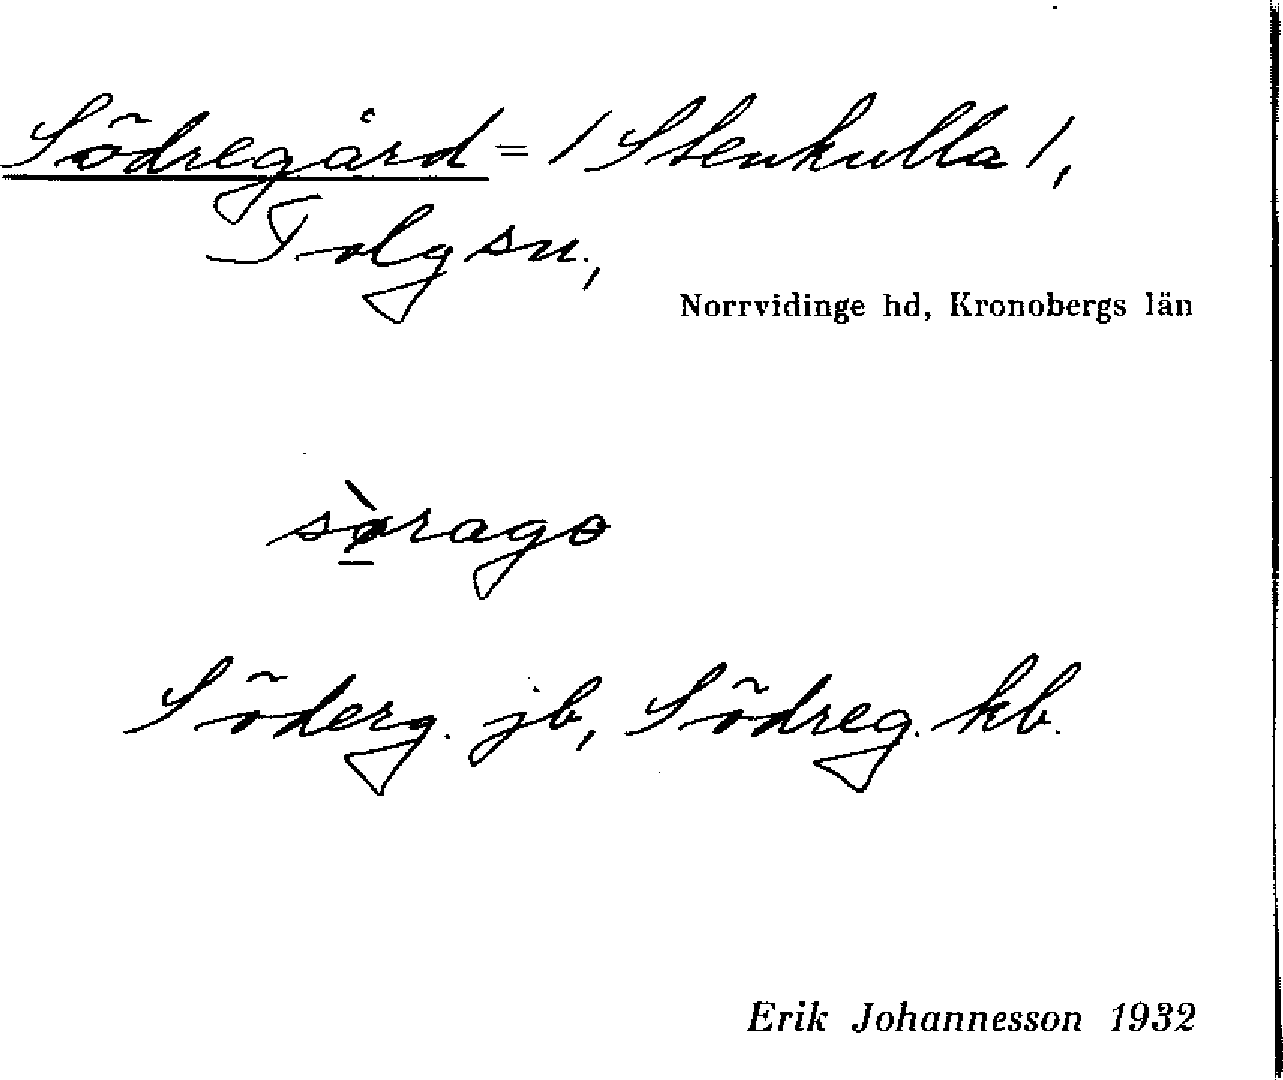 Södregård = / Stenkulla /,
Tolg sn.,
Norrvidinge hd, Kronobergs län
sø̱̀rago
Söderg. jb, Södreg. kb.
Erik Johannesson 1932